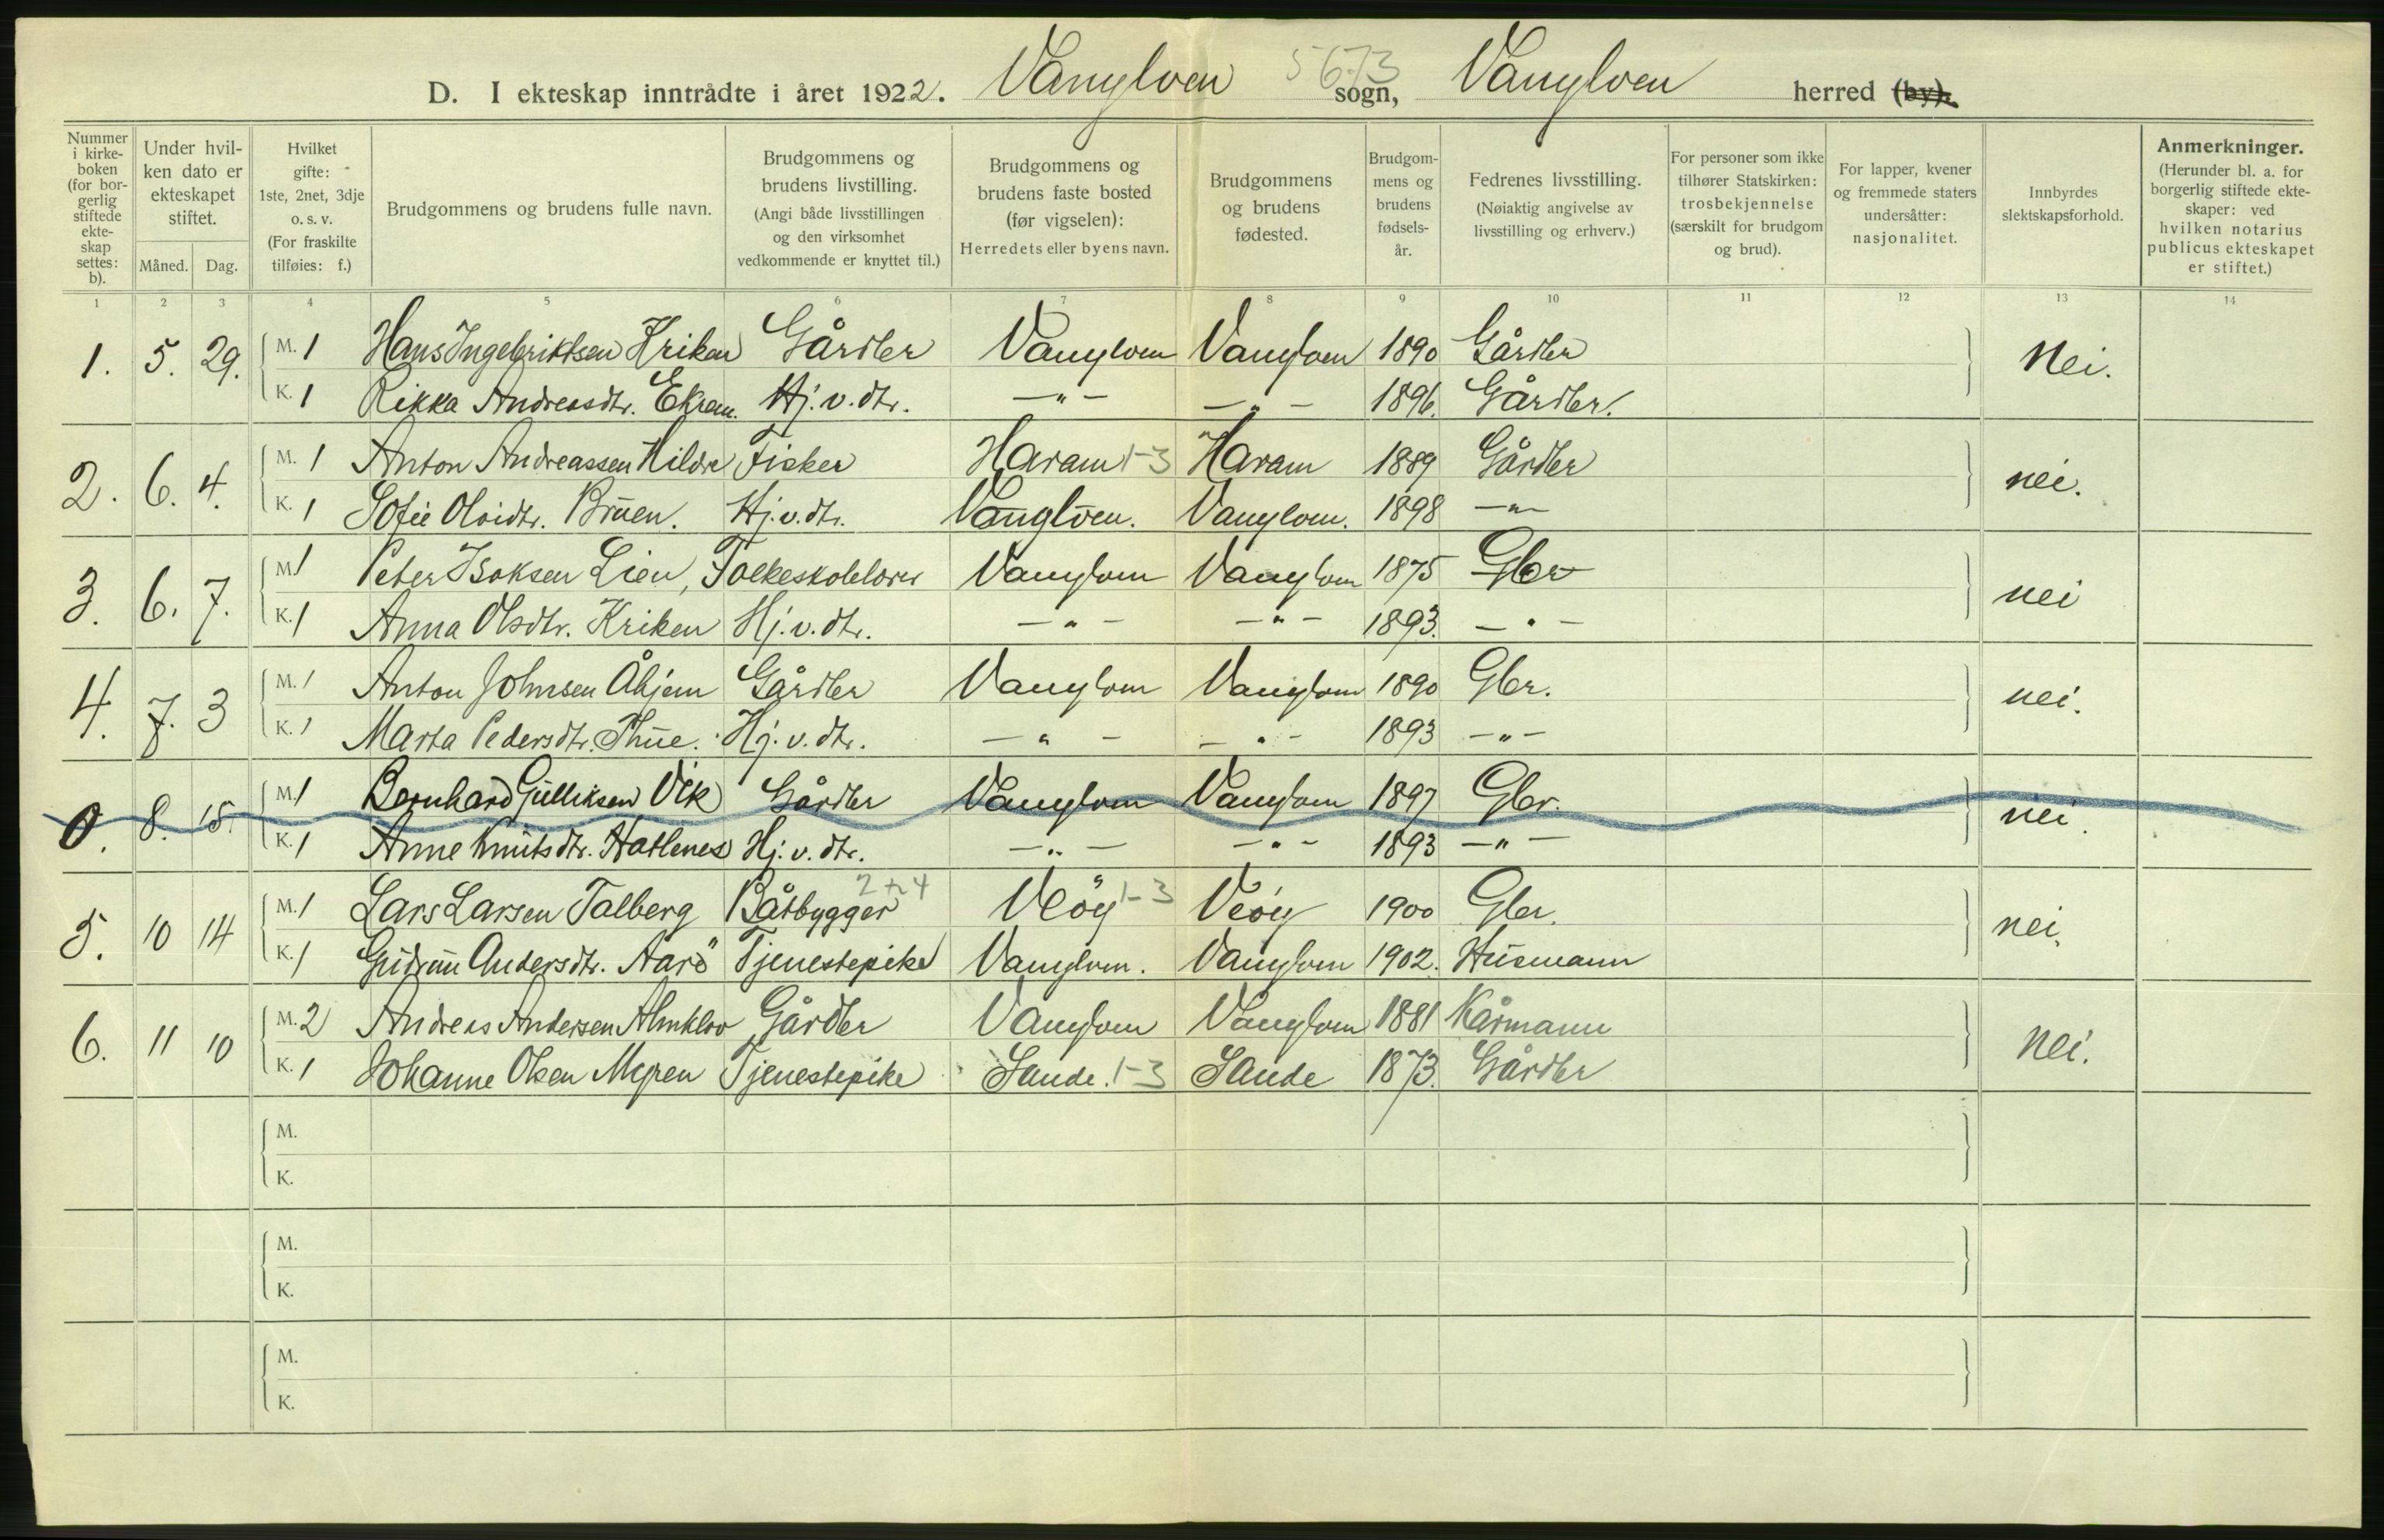 D. I ekteskap inntrådte i året 1922. Vanylven sogn, Vanylven herred (by).
5673
Nummer i kirke-boken (for bor-gerlig stiftede ekte-skap settes: b).
Under hvil-ken dato er ekteskapet stiftet.
Måned. Dag.
Hvilket gifte: 1ste, 2net, 3dje o. s. v. (For fraskilte tilføies: f.)
Brudgommens og brudens fulle navn.
Brudgommens og brudens livstilling. (Angi både livsstillingen og den virksomhet vedkommende er knyttet til.)
Brudgommens og brudens faste bosted (før vigselen): Herredets eller byens navn.
Brudgommens og brudens fødested.
Brudgom-mens og brudens fødsels-år.
Fedrenes livsstilling. (Nøiaktig angivelse av livsstilling og erhverv.)
For personer som ikke tilhører Statskirken: trosbekjennelse (særskilt for brudgom og brud).
For lapper, kvener og fremmede staters undersåtter: nasjonalitet.
Innbyrdes slektskapsforhold.
Anmerkninger. (Herunder bl. a. for borgerlig stiftede ekte-skaper: ved hvilken notarius publicus ekteskapet er stiftet.)
1 2 3 4 5 6 7 8 9 10 11 12 13 14
1. 5. 29. M. 1 Hans Ingebriktsen Kriken Gårdbr Vanylven Vanylven 1890 Gårdbr Nei.
K. 1 Rikka Andreasdtr. Ekrem. Hj. v. dtr. —"— —"— 1896. Gårdbr.
2. 6. 4. M. 1 Anton Andreassen Hildre Fisker Haram 1-3 Haram 1889 Gårdbr nei.
K. 1 Sofie Olvidtr. Brūen. Hj. v. dtr. Vanylven. Vanylven. 1898 —"—
3. 6. 7. M. 1 Peter Isaksen Lien, Folkeskolelærer Vanylven Vanylven 1875 Gbr nei
K. 1 Anna Olsdtr. Kriken Hj. v. dtr. —"— —"— 1893. —"—
4. 7. 3 M. 1 Anton Johnsen Åhjem Gårdbr Vanylven Vanylven 1890 Gbr. nei.
K. 1 Marta Pedersdtr. Thūe. Hj. v. dtr. —"— —"— 1893 —"—
0. 8. 15. M. 1 Bernhard Gūlliksen Vik Gårdbr Vanylven Vanylven 1897 Gbr. nei.
K. 1 Anne Knūtsdtr. Hatlenes Hj. v. dtr. —"— —"— 1893 —"—
5. 10 14 M. 1 Lars Larsen Talberg Båtbygger 2 + 4 Veöy 1-3 Veöy 1900 Gbr. nei.
K. 1 Gūdrūn Andersdtr. Aarö Tjenestepike Vanylven. Vanylven 1902. Hūsmann
6. 11 10 M. 2 Andreas Andersen Almklov Gårdbr Vanylven Vanylven 1881 Kårmann nei.
K. 1 Johanne Olsen Myren Tjenestepike Sande. 1-3 Sande 1873. Gårdbr
M.
K.
M.
K.
M.
K.